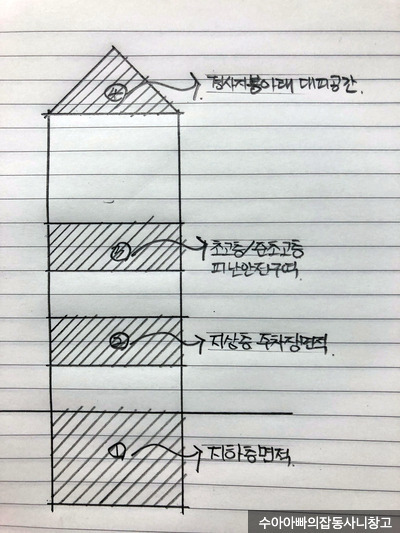 ④ 경사지붕아래 대피공간.
③ 초고층/준초고층
피난안전구역.
② 지상층 주차장면적.
① 지하층면적.
수아아빠의잡동사니창고